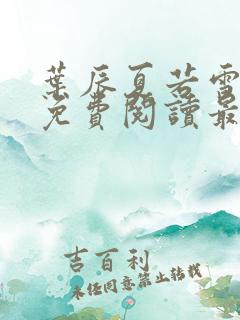 葉辰夏若雪
免費閱讀最
吉百利
未经同意禁止转载